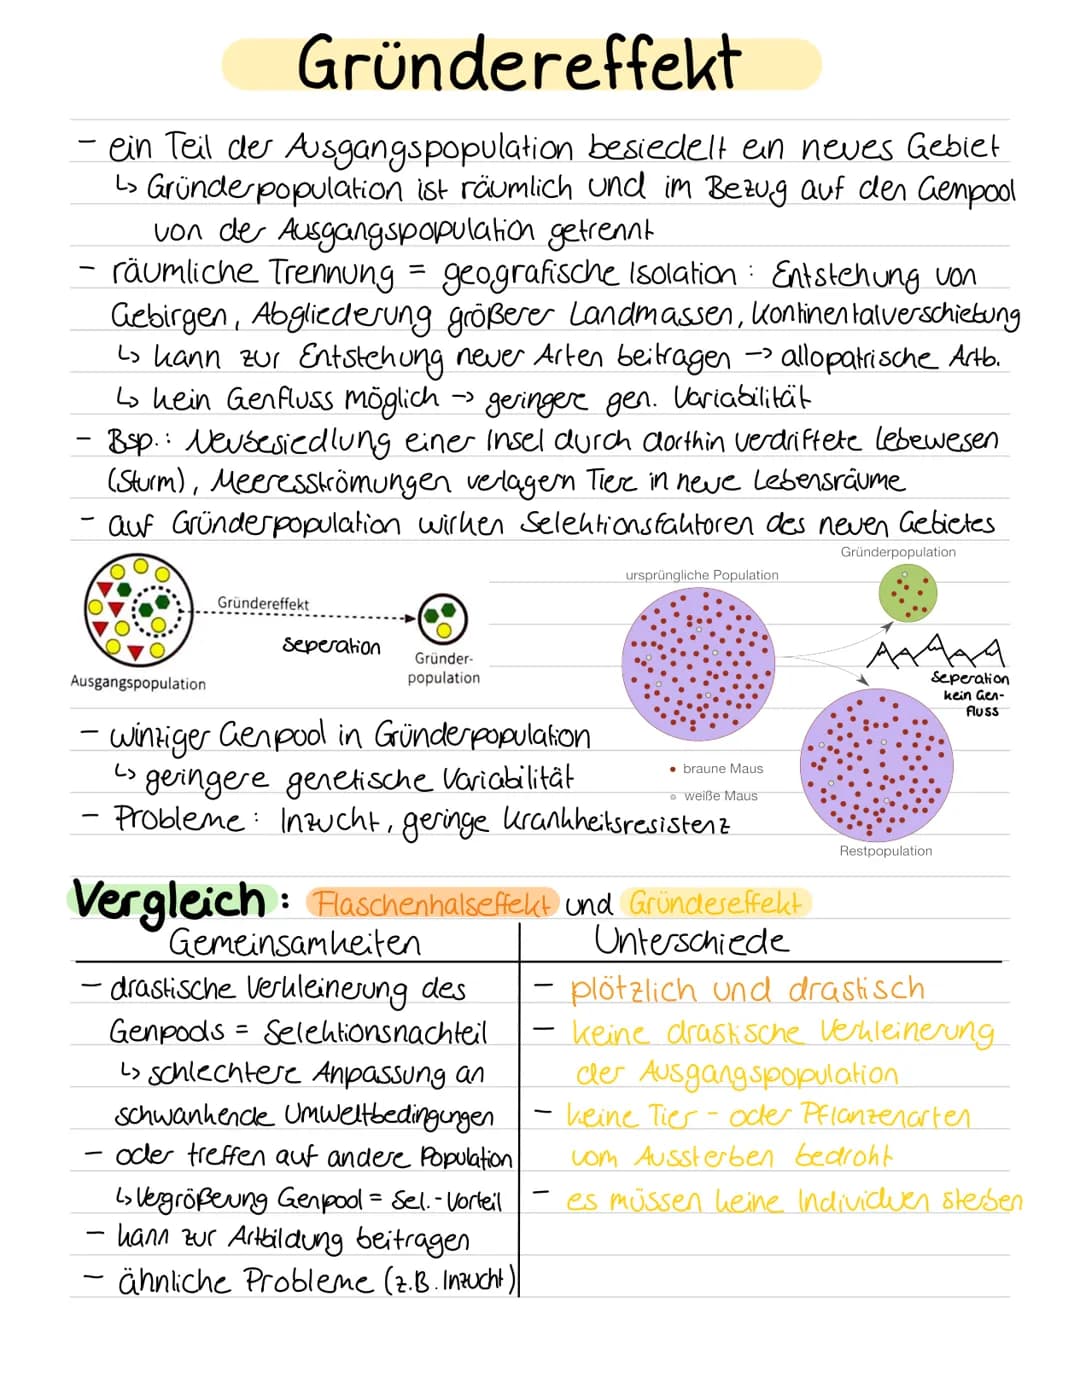 Gründereffekt
- ein Teil der Ausgangspopulation besiedelt ein neues Gebiet
↳ Gründerpopulation ist räumlich und im Bezug auf den Genpool
von der Ausgangspopulation getrennt
- räumliche Trennung = geografische Isolation : Entstehung von
Gebirgen, Abgliederung größerer Landmassen, Kontinentalverschiebung
↳ kann zur Entstehung neuer Arten beitragen -> allopatrische Artb.
↳ kein Genfluss möglich -> geringere gen. Variabilität
- Bsp.: Neubesiedlung einer Insel durch dorthin verdriftete Lebewesen
(Sturm), Meeresströmungen verlagern Tiere in neue Lebensräume
- auf Gründerpopulation wirken Selektionsfaktoren des neuen Gebietes
Gründereffekt
Seperation
Ausgangspopulation
Gründer-
population
ursprüngliche Population
Gründerpopulation
Seperation
kein Gen-
fluss
braune Maus
weiße Maus
Restpopulation
- winziger Genpool in Gründerpopulation
↳ geringere genetische Variabilität
- Probleme: Inzucht, geringe Krankheitsresistenz
Vergleich: Flaschenhalseffekt und Gründereffekt
Gemeinsamkeiten
- drastische Verkleinerung des
Genpools = Selektionsnachteil
↳ schlechtere Anpassung an
schwankende Umweltbedingungen
- oder treffen auf andere Population
↳ Vergrößerung Genpool = Sel.-Vorteil
- kann zur Artbildung beitragen
- ähnliche Probleme (z.B. Inzucht)
Unterschiede
- plötzlich und drastisch
- keine drastische Verkleinerung
der Ausgangspopulation
- keine Tier- oder Pflanzenarten
vom Aussterben bedroht
- es müssen keine Individuen sterben